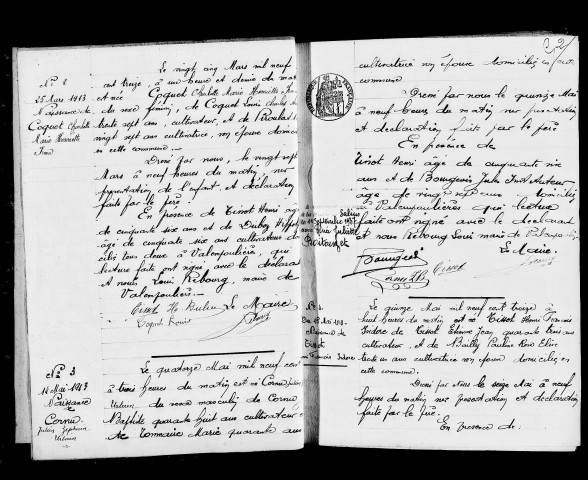 N° 2
25 Mars 1913
Naissance de
Coquet Charlotte
Marie Henriette
Irma
Le vingt cinq Mars mil neuf
cent treize, à une heure et demie du matin
est née Coquet Charlotte Marie Henriette Irma
du sexe féminin, de Coquet Louis Charles
trente sept ans, cultivateur, et de
vingt sept ans cultivatrice, son épouse domici
en cette commune.
Dressé par nous, le vingt sept
Mars à neuf heures du matin, sur
présentation de l'enfant et déclaration
faite par le père.
En présence de Tissot Henri âgé
de cinquante six ans et de Duboz
âgé de cinquante six ans cultivateurs do
ciliés tous deux à Valempoulières, qui
lecture faite ont signé avec le déclarant
et nous Louis Rebourg, maire de
Valempoulières.
Tissot H. Le Maire
Coquet Louis
N° 3
14 Mai 1913
Naissance
de
Cornu
Le quatorze Mai mil neuf cent
à trois heures du matin est né Cornu
du sexe masculin de Cornu
Baptiste quarante huit ans cultivateur
et de Tonnaire Marie quarante ans
2
cultivatrice son épouse domiciliés en cette
commune
Dressé par nous le quinze Mai
à neuf heures du matin sur présentation
et déclaration faite par le père
En présence de
Tissot Henri âgé de cinquante six
ans et de Bourgeois Jules
âgé de vingt sept ans
à Valempoulières qui lecture
faite ont signé avec le déclarant
et nous Rebourg Louis maire de
Le Maire
Bourgeois
Tissot
N° 4
Naissance de
Tissot
Le quinze Mai mil neuf cent treize à
huit heures du matin est né Tissot Henri François
Isidore de Tissot Etienne Jean quarante trois ans
cultivateur, et de Bailly Pauline Rose Elise
trente ans cultivatrice son épouse domiciliés en
cette commune.
Dressé par Nous le seize Mai à neuf
heures du matin sur présentation et déclaration
faite par le père.
En présence de: